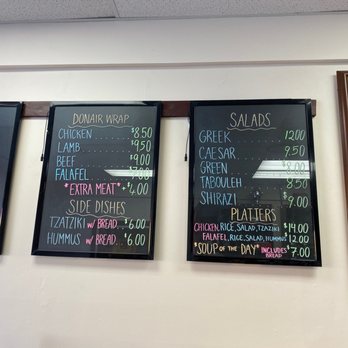 DONAIR WRAP
CHICKEN ..... $8.50
LAMB ..... $9.50
BEEF ..... $9.00
FALAFEL ..... $7.00
*EXTRA MEAT* +$4.00
SIDE DISHES
TZATZIKI w/ BREAD.. $6.00
HUMMUS w/ BREAD... $6.00
SALADS
GREEK ..... 12.00
CAESAR ..... 9.50
GREEN ..... $8.00
TABOULEH ..... 8.50
SHIRAZI ..... $9.00
PLATTERS
CHICKEN, RICE, SALAD, TZAZIKI $14.00
FALAFEL, RICE, SALAD, HUMMUS $12.00
*SOUP OF THE DAY* INCLUDES BREAD $7.00